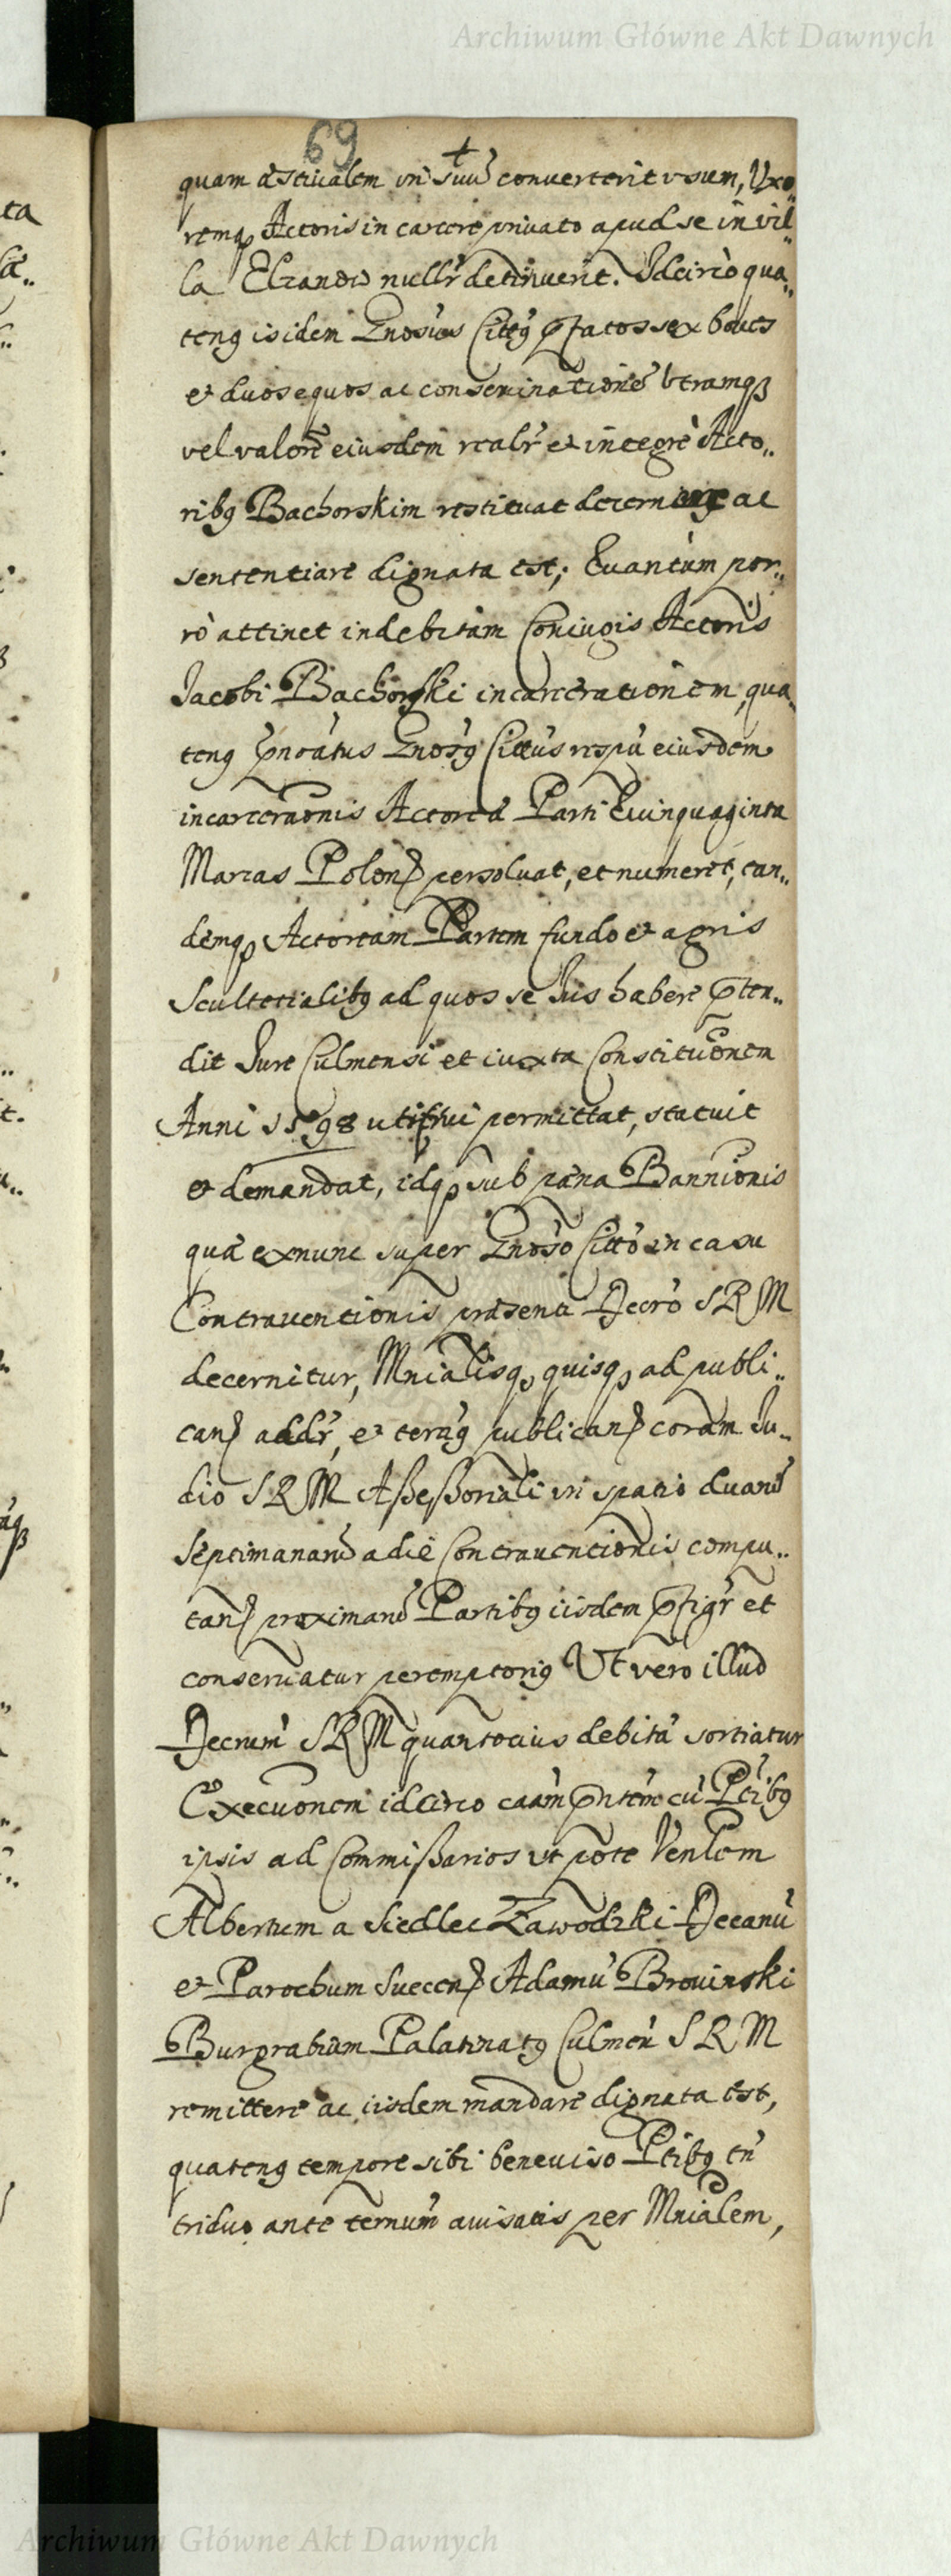 Archiwum Główne Akt Dawnych
69
quam æstiualem in suũ conuerterit vsum, Uxo..
remq; Actoris in carcere priuato apud se in vil..
la Elzanow nullr̃ detinuerit. Idcirco qua..
teng isidem Gnosus Cittg p̃fatos sex boues
et duos equos ac conseminationẽ vtramqꝫ
vel valorẽ eiusdem realr̃ et integrè Acto..
ribg Bachorskim restituat decern ac
sententiare dignata est; Quantum por..
rò attinet indebitam Coniugis Actoris
Jacobi Bachorski incarcerationem, qua..
teng Gnosg Cittus respũ eiusdem
incarceraõnis Actoreæ Parti Quinquaginta
Marcas Polon persoluat, et numeret, ean..
demq; Actoream Partem fundo et agris
Scultetialibg ad quos se Jus habere p̃ten..
dit Jure Culmensi et iuxta Constituõnem
Anni 1598 uti frui permittat, statuit
et demandat, idq; sub pæna Banniõnis
quæ exnunc super Gnoso Citto in casu
Contrauentionis præsenti Decro S R M
decernitur, Mnialisq; quisq; ad publi..
can addr̃, et tersg publican coram Ju..
dio S R M Aßeßoriali in spatio duarũ
Septimanarũ a die Contrauentionis compu..
tan proximarũ Partibg iisdem p̃figr̃ et
conseruatur peremptorig Ut vero illud
Decrum S R M quantocius debitã sortiatur
Execuõnem idcirco caam p̃ntem cũ Ptibg
ipsis ad Commißarios ut pote Venlem
Albertum a Siedlec Zawodzki Decanũ
et Parochum Suecen Adamũ Brouinski
Burgrabium Palatinatg Culmen S R M
remittere ac iisdem mandare dignata est,
quateng tempore sibi beneuiso Ptibg tñ
triduo ante ternum auisatis per Mnialem,
Archiwum Główne Akt Dawnych